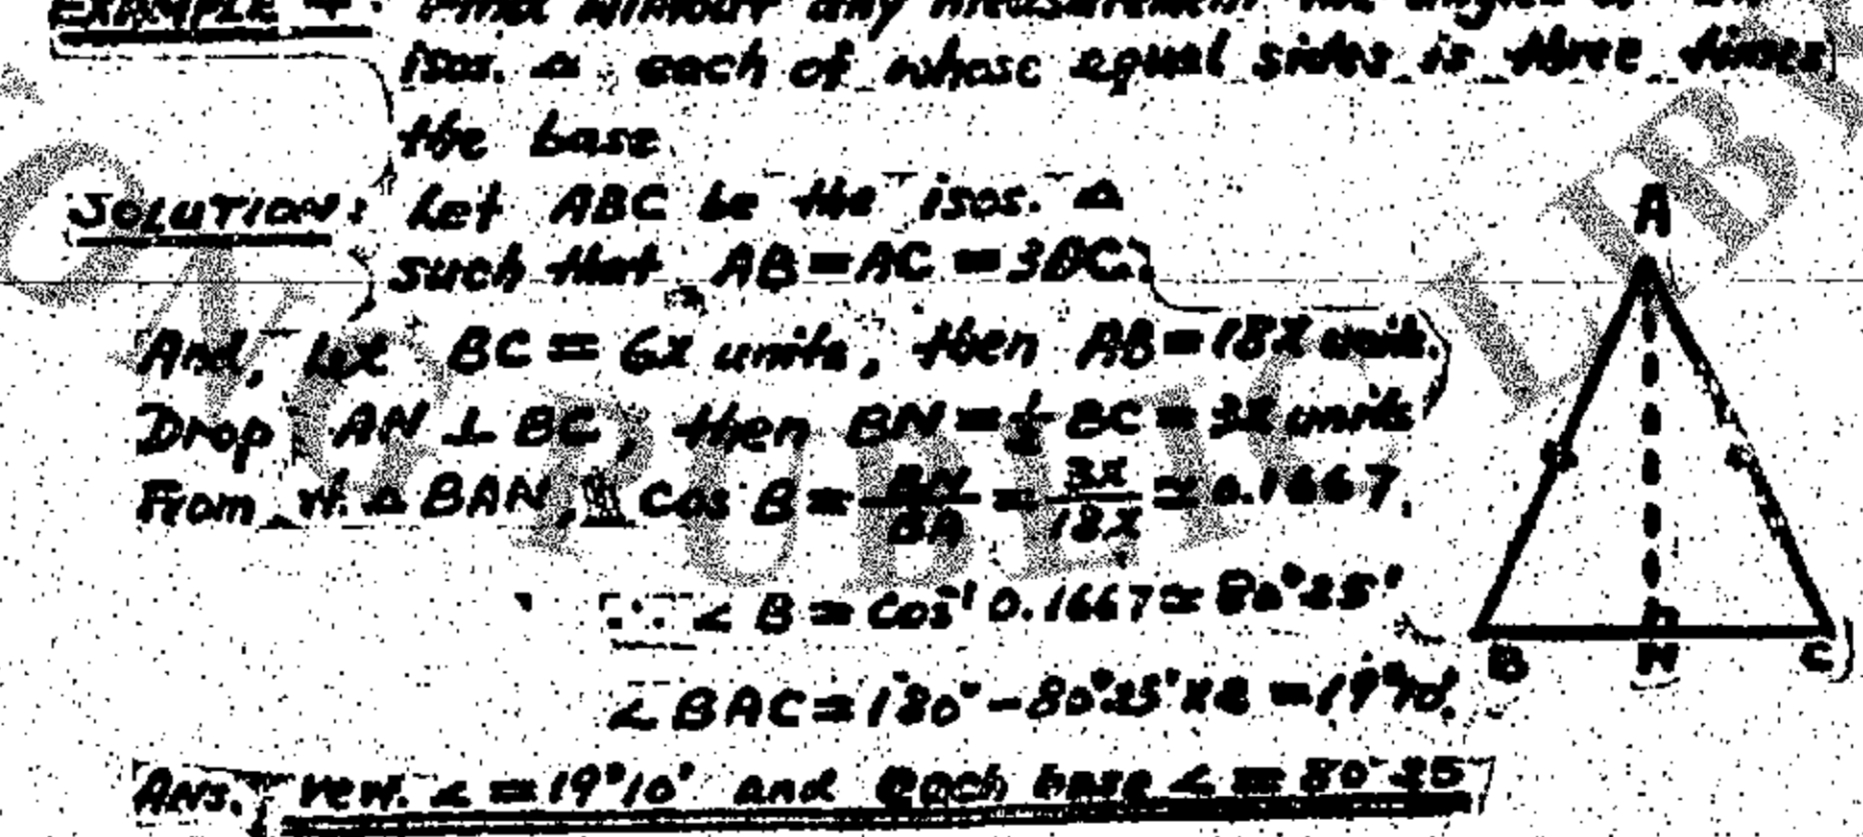 EXAMPLE 4: Find without any measurement the angles of an
isos. △ each of whose equal sides is three times
the base.
SOLUTION: Let ABC be the isos. △
such that AB = AC = 3BC.
And, let BC = 6x units, then AB = 18x units.
Drop AN ⊥ BC, then BN = ½ BC = 3x units
From rt. △ BAN, cos B = BN/BA = 3x/18x ≃ 0.1667.
∴ ∠ B = cos⁻¹ 0.1667 ≃ 80°25'
∠ BAC = 180° - 80°25' x 2 = 19°10'.
Ans. vert. ∠ = 19°10' and each base ∠ = 80°25'
A
B N C
PUBLIC